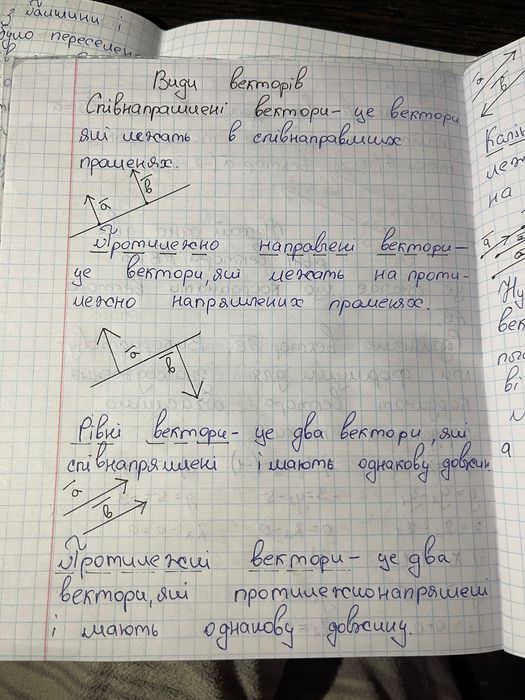 з Галичини і
було переселено
Види векторів
Співнапрямлені вектори - це вектори
які лежать в співнаправлених
променях.
a b
Протилежно направлені вектори -
це вектори, які лежать на проти-
лежно напрямлених променях.
a b
Рівні вектори - це два вектори, які
співнапрямлені і мають однакову довжин
a
b
Протилежні вектори - це два
вектори, які протилежнонапрямлені
і мають однакову довжину.
a
b
Колін
леж
на
a
Ну
век
поч
ві
a